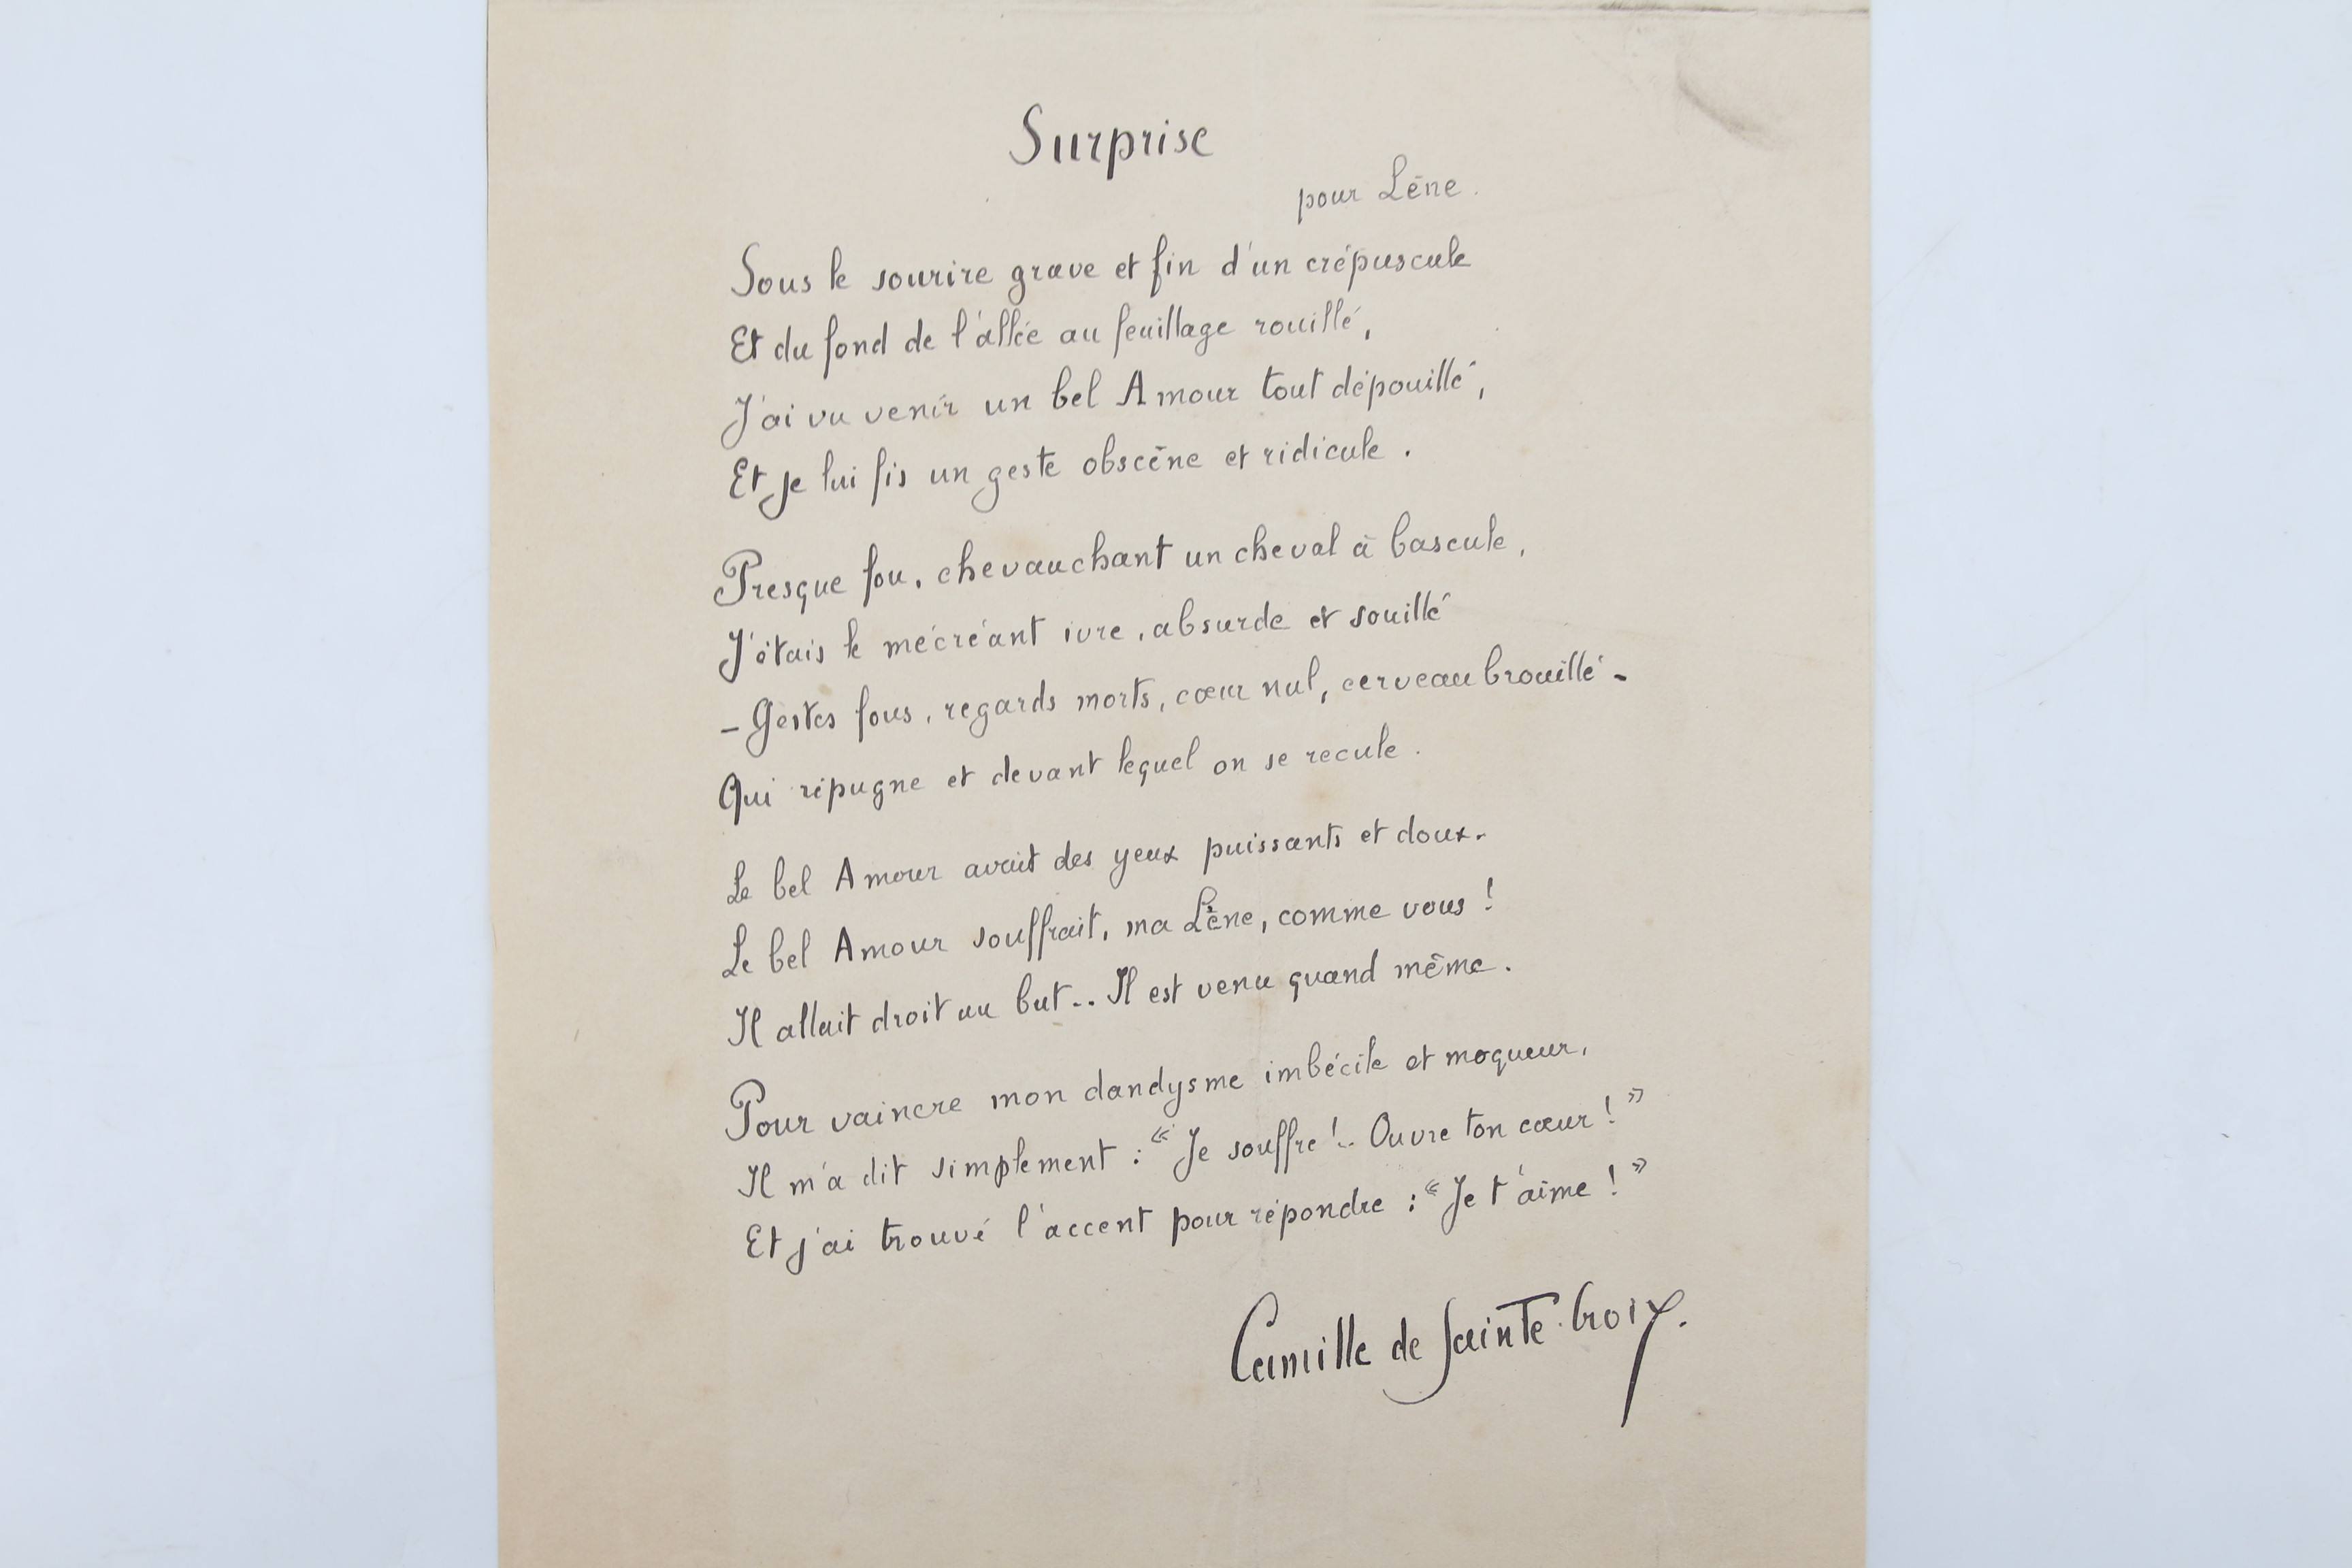 Surprise
pour Lène.
Sous le sourire grave et fin d'un crépuscule
Et du fond de l'allée au feuillage rouillé,
J'ai vu venir un bel Amour tout dépouillé,
Et je lui fis un geste obscène et ridicule.
Presque fou, chevauchant un cheval à bascule,
J'étais le mécréant ivre, absurde et souillé
– Gestes fous, regards morts, cœur nul, cerveau brouillé –
Qui répugne et devant lequel on se recule.
Le bel Amour avait des yeux puissants et doux.
Le bel Amour souffrait, ma Lène, comme vous !
Il allait droit au but... Il est venu quand même.
Pour vaincre mon dandysme imbécile et moqueur,
Il m'a dit simplement : « Je souffre !.. Ouvre ton cœur ! »
Et j'ai trouvé l'accent pour répondre : « Je t'aime ! »
Camille de Sainte-Croix.